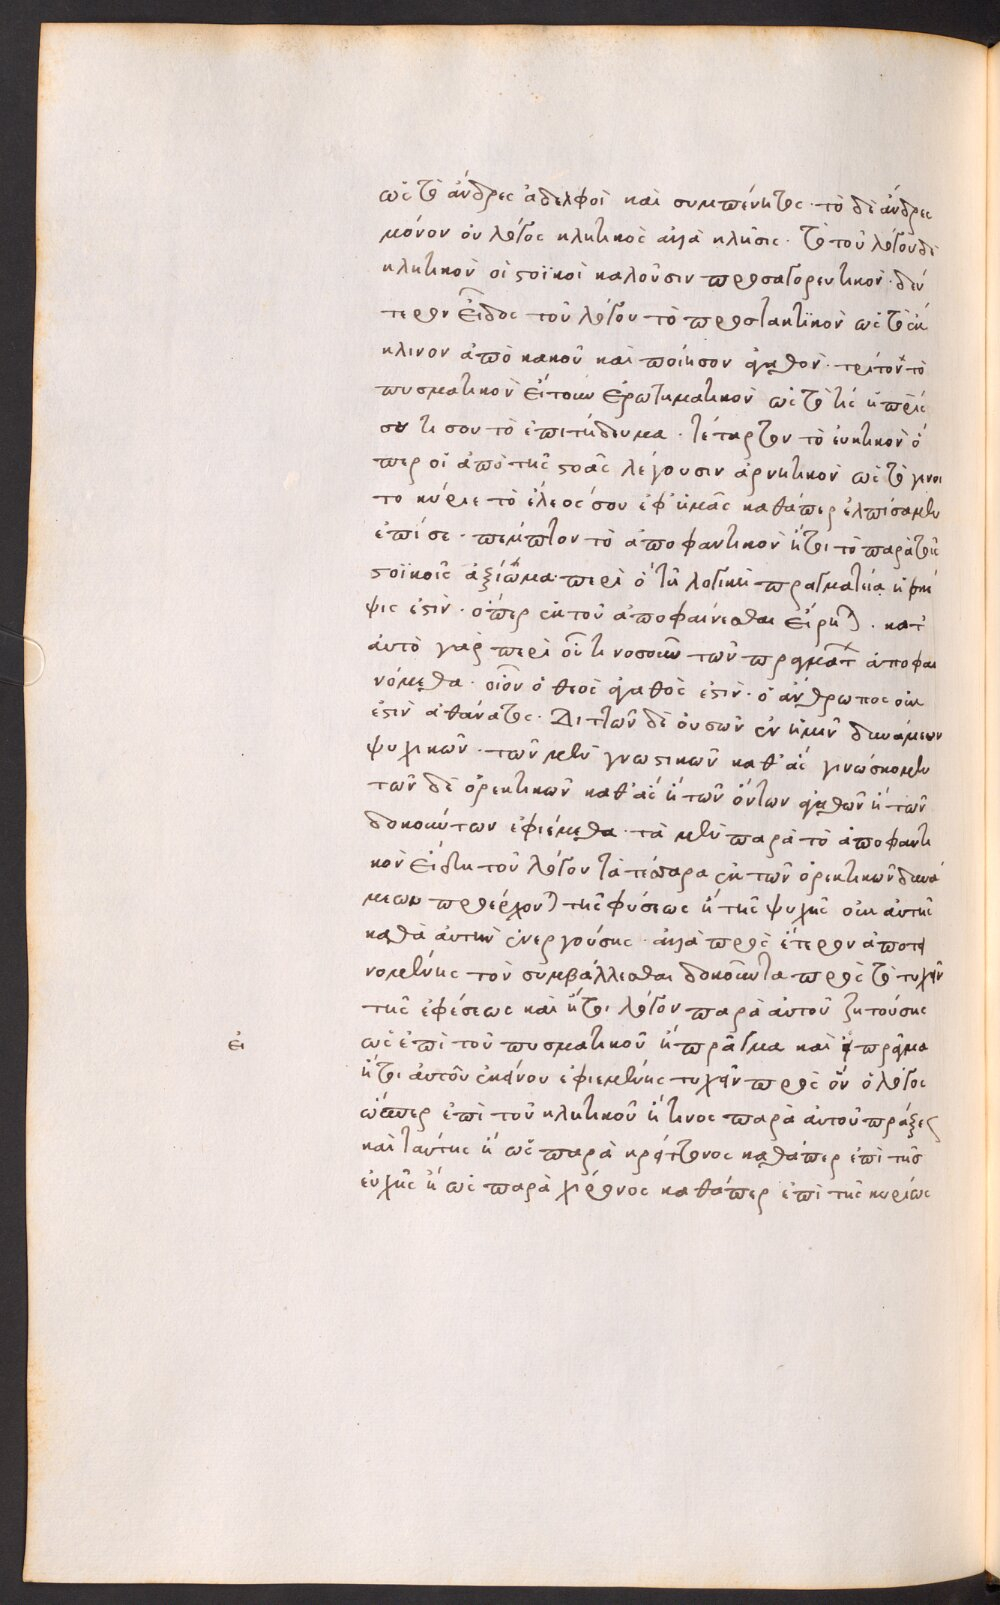 ὡς τὸ ἄνδρες ἀδελφοὶ καὶ συμπένητες · τὸ δὲ ἄνδρες
μόνον οὐ λόγος κλητικὸς ἀλλὰ κλῆσις · τὸ τοῦ λόγου δὲ
κλητικὸν οἱ στοϊκοὶ καλοῦσιν προσαγορευτικόν · δεύ
τερον εἶδος τοῦ λόγου τὸ προστακτικὸν ὡς τὸ ἔκ
κλινον ἀπὸ κακοῦ καὶ ποίησον ἀγαθόν · τρίτον τὸ
πυσματικὸν εἴτουν ἐρωτηματικὸν ὡς τὸ τίς ἡ πρᾶξίς
σου τί σου τὸ ἐπιτήδευμα · τέταρτον τὸ εὐκτικὸν ὅ
περ οἱ ἀπὸ τῆς στοᾶς λέγουσιν ἀρνητικὸν ὡς τὸ γένοι
το κύριε τὸ ἔλεός σου ἐφ' ἡμᾶς καθάπερ ἐλπίσαμεν
ἐπί σε · πέμπτον τὸ ἀποφαντικὸν ἤτοι τὸ παρὰ τοῖς
στοϊκοῖς ἀξίωμα περὶ ὃ τῇ λογικῇ πραγματείᾳ ἡ σκέ
ψις ἐστίν · ὅπερ ἐκ τοῦ ἀποφαίνεσθαι εἴρηται · κατ'
αὐτὸ γὰρ περὶ οὗ τινοσοῦν τῶν πραγμάτων ἀποφαι
νόμεθα · οἷον ὁ θεὸς ἀγαθός ἐστιν · ὁ ἄνθρωπος οὐκ
ἐστὶν ἀθάνατος · Διττῶν δὲ οὐσῶν ἐν ἡμῖν δυνάμεων
ψυχικῶν · τῶν μὲν γνωστικῶν καθ' ἃς γινώσκομεν
τῶν δὲ ὀρεκτικῶν καθ' ἃς ἢ τῶν ὄντων ἀγαθῶν ἢ τῶν
δοκούντων ἐφιέμεθα · τὰ μὲν παρὰ τὸ ἀποφαντι
κὸν εἴδη τοῦ λόγου τὰ τέσσαρα ἐκ τῶν ὀρεκτικῶν δυνά
μεων προέρχονται τῆς φύσεως ἢ τῆς ψυχῆς οὐκ αὐτῆς
καθ' αὑτὴν ἐνεργούσης · ἀλλὰ πρὸς ἕτερον ἀποτει
νομένης τὸν συμβάλλεσθαι δοκοῦντα πρὸς τὸ τυχεῖν
τῆς ἐφέσεως καὶ ἤτοι λόγον παρὰ αὐτοῦ ζητούσης
ὡς ἐπὶ τοῦ πυσματικοῦ ἢ πρᾶγμα καὶ εἰ πρᾶγμα
ἤτοι αὐτοῦ ἐκείνου ἐφιεμένης τυχεῖν πρὸς ὃν ὁ λόγος
ὥσπερ ἐπὶ τοῦ κλητικοῦ ἤ τινος παρὰ αὐτοῦ πράξεως
καὶ ταύτης ἢ ὡς παρὰ κρείττονος καθάπερ ἐπὶ τῆς
εὐχῆς ἢ ὡς παρὰ χείρονος καθάπερ ἐπὶ τῆς κυρίως
εἰ